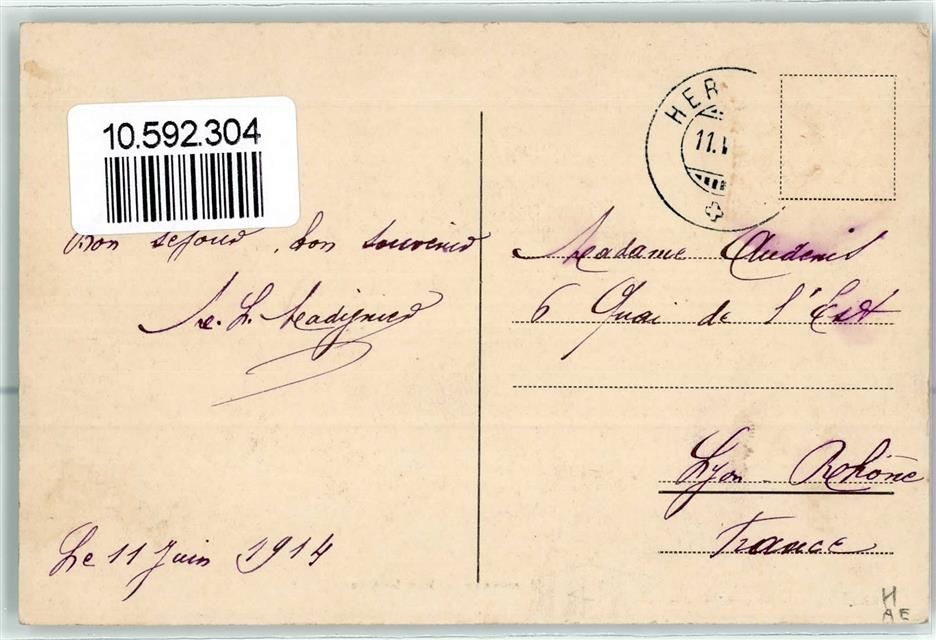 10.592.304
HER
11.V
Bon séjour, bon souvenir
Madame Audenis
6 Quai de l'Est
Lyon Rhône
France
Le 11 Juin 1914
H
AE